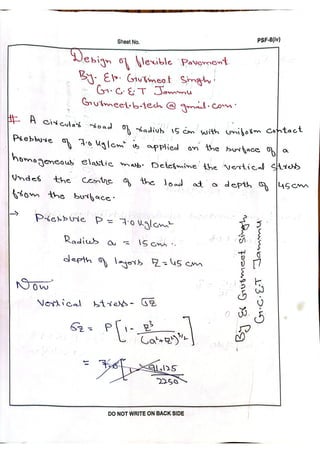 Sheet No.
PSF-8(iv)
Design of flexible Pavement
By. Er. Gurmeet Singh
Gr. C. E T Jammu
Gurmeet.b.tech @ gmail.com.
#: A circular road of radius 15 cm with uniform contact
Pressure of 7.0 kg/cm² is applied on the surface of a
homogeneous elastic mass. Determine the vertical stress
under the centre of the load at a depth of 45cm
from the surface.
→ Pressure P = 7.0 kg/cm²
Radius a = 15 cm.
depth of layers Z = 45 cm
Now
Vertical stress - σz
σz = P [1 - Z³ / (a²+Z²)^3/2]
= 7.0 [1 - 91.125 / 2250
By Er Gurmeet Singh
Gr. C. E.T Jammu
DO NOT WRITE ON BACK SIDE